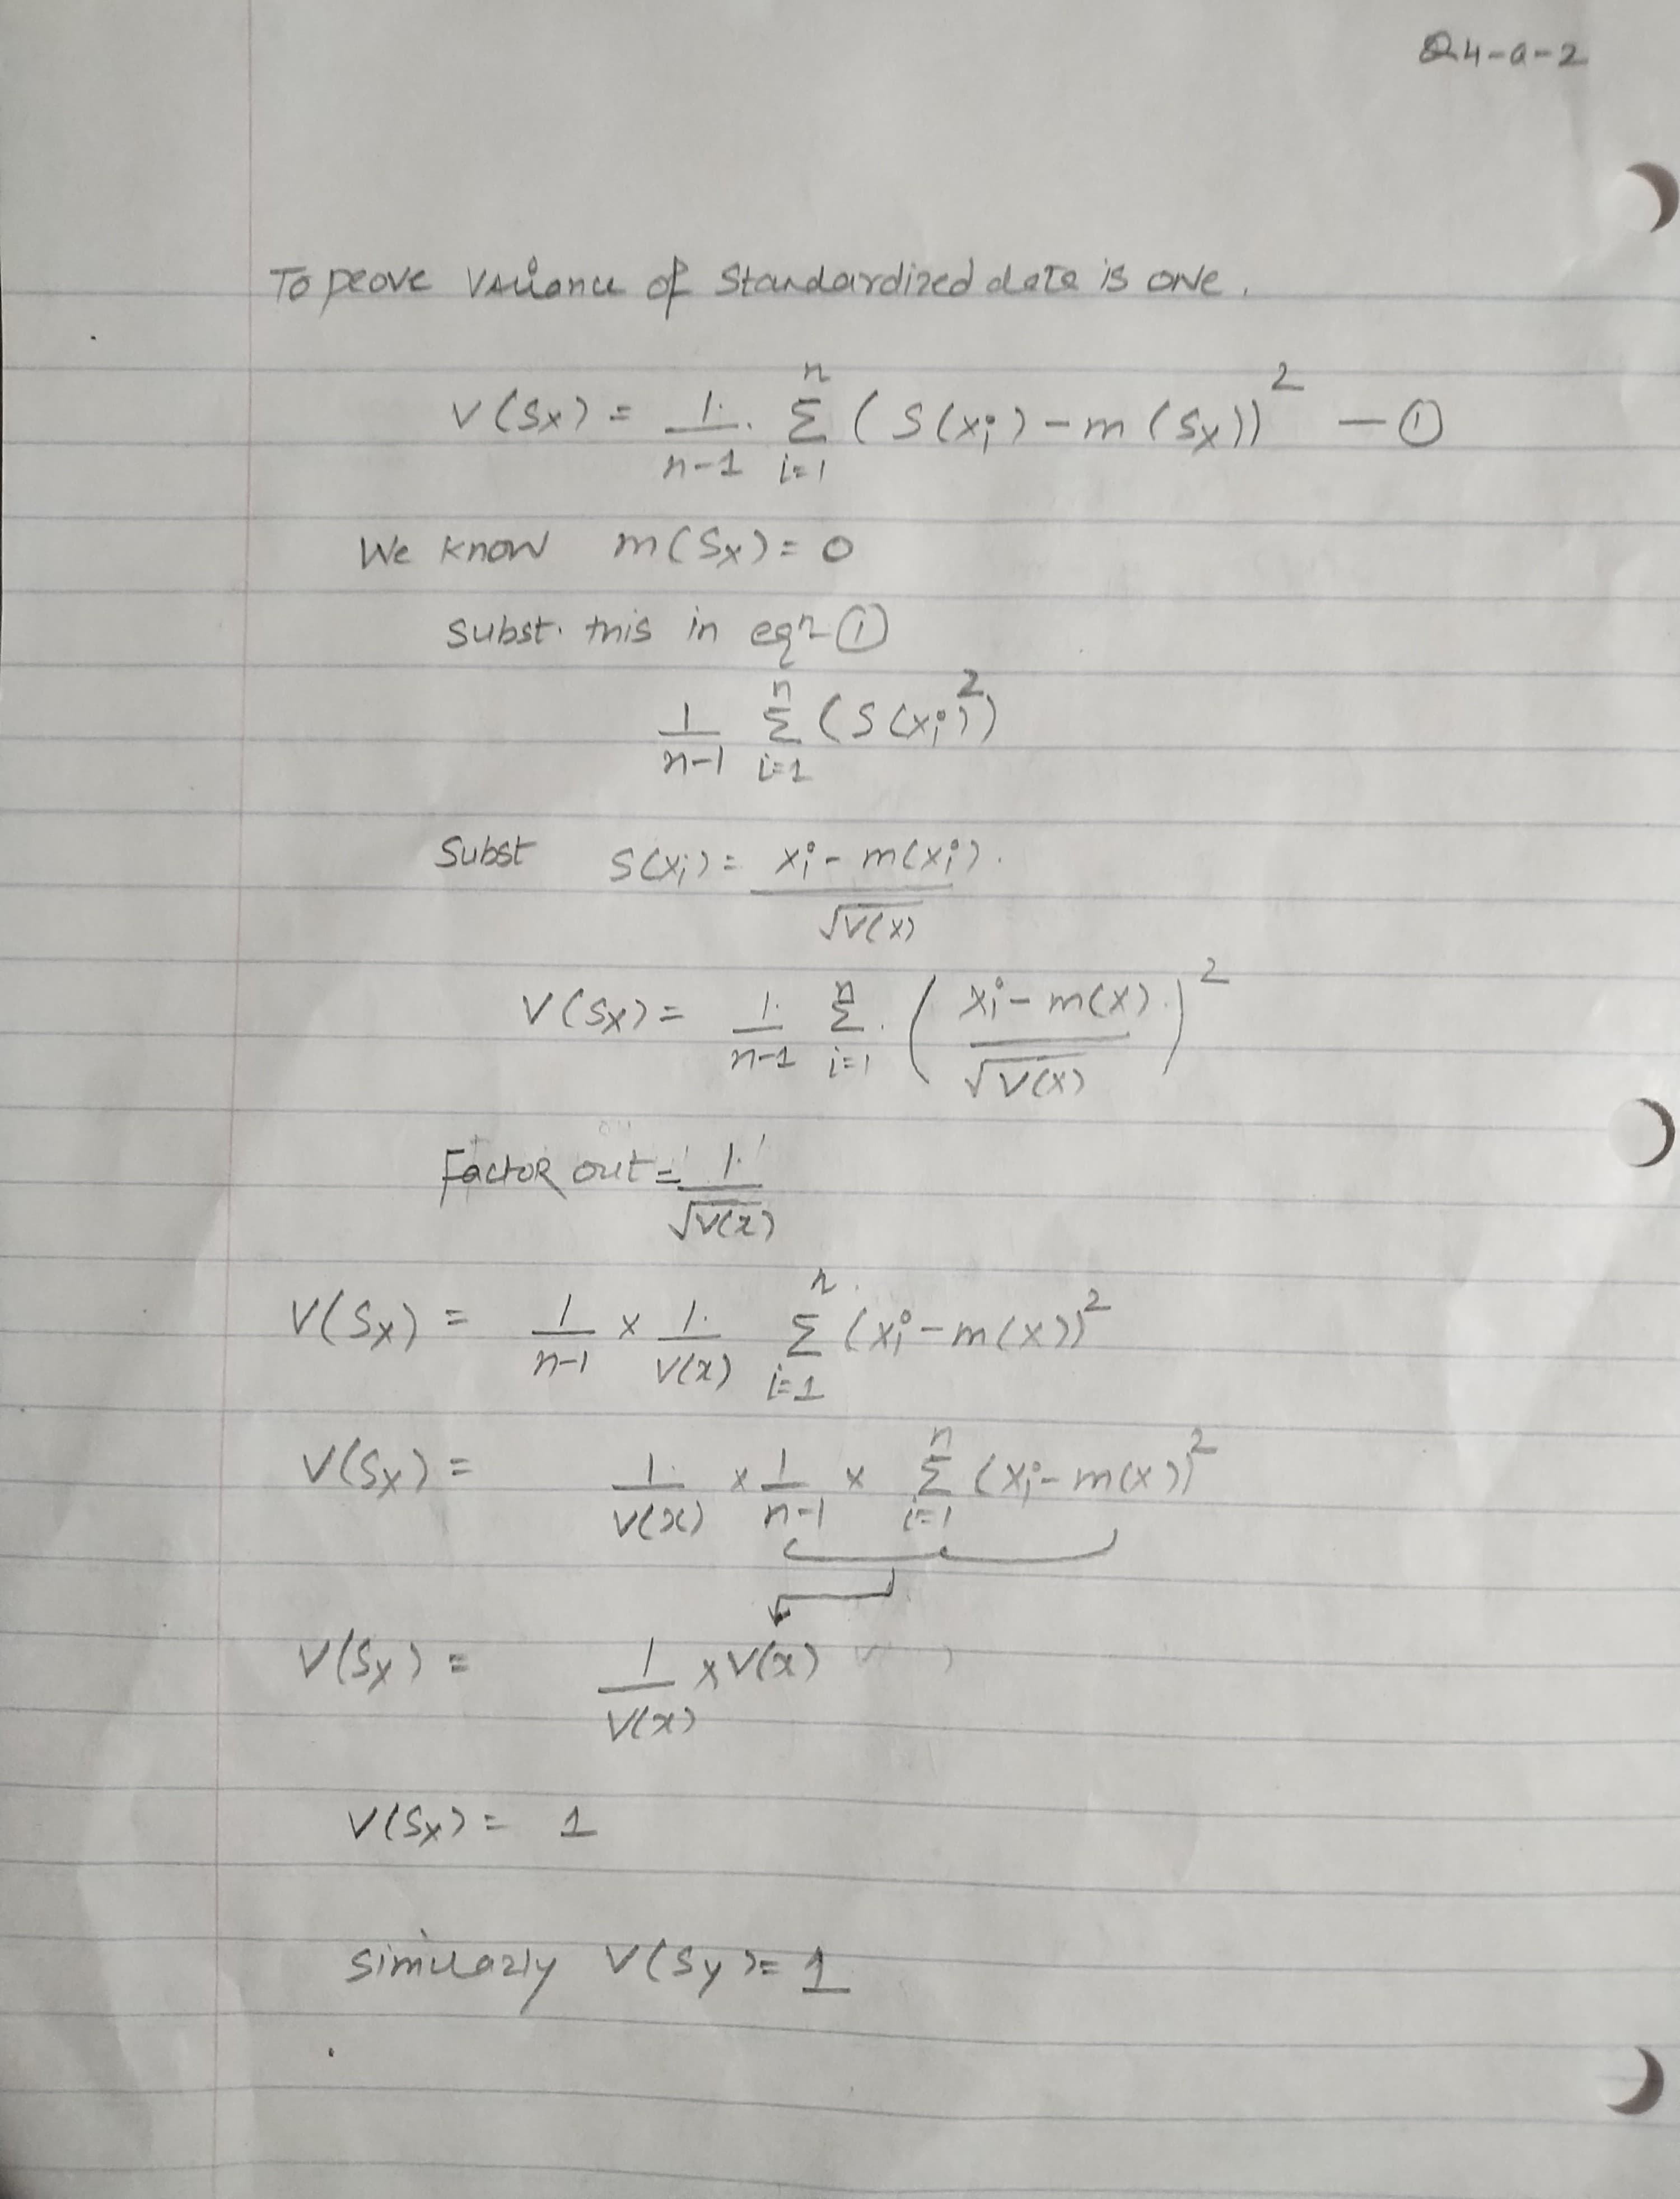 Q4-a-2
To prove variance of Standardized data is one.
V(Sx) = 1/(n-1) · Σ_{i=1}^{n} (S(xi) - m(Sx))² — ①
We know m(Sx) = 0
Subst. this in eqn ①
1/(n-1) Σ_{i=1}^{n} (S(xi)²)
Subst S(xi) = (xi - m(xi)) / √V(x)
V(Sx) = 1/(n-1) Σ_{i=1}^{n} ((xi - m(x)) / √V(x))²
Factor out = 1/√V(x)
V(Sx) = 1/(n-1) × 1/V(x) Σ_{i=1}^{n} (xi - m(x))²
V(Sx) = 1/V(x) × 1/(n-1) × Σ_{i=1}^{n} (xi - m(x))²
V(Sx) = 1/V(x) × V(x)
V(Sx) = 1
Similarly V(Sy) = 1